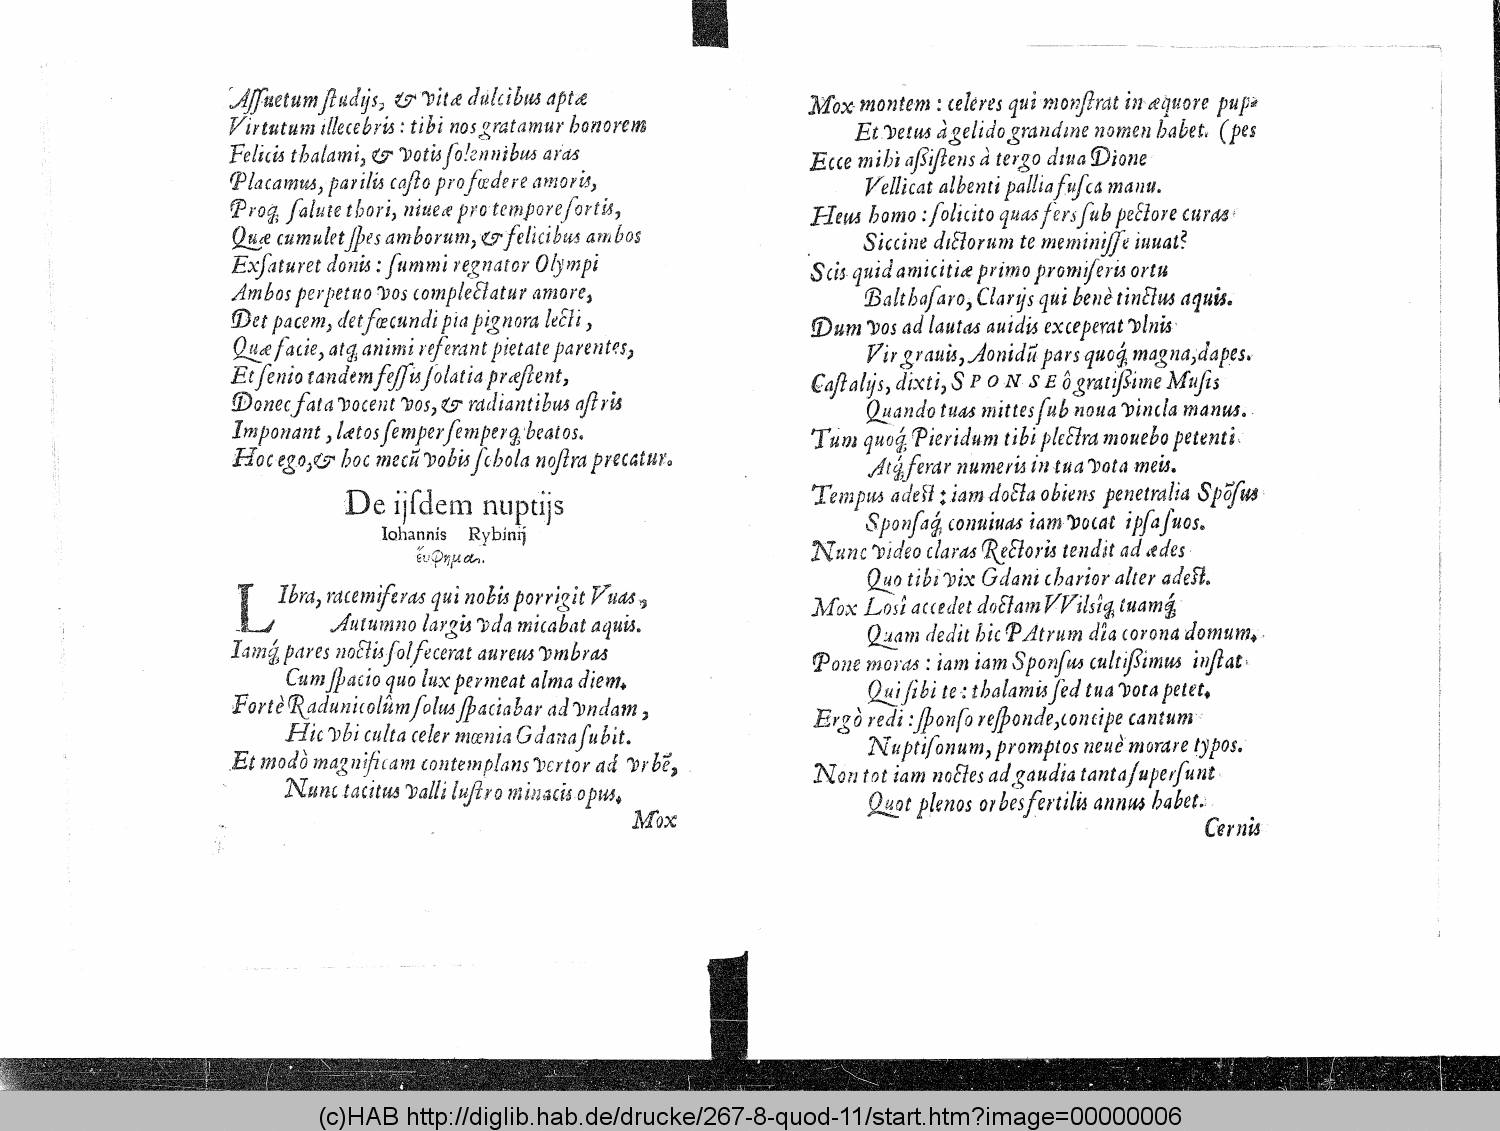 Aſſuetum ſtudijs, & vitæ dulcibus aptæ
Virtutum illecebris : tibi nos gratamur honorem
Felicis thalami, & votis ſolennibus aras
Placamus, parilis caſto pro fœdere amoris,
Proq́; ſalute thori, niueæ pro tempore ſortis,
Quæ cumulet ſpes amborum, & felicibus ambos
Exſaturet donis : ſummi regnator Olympi
Ambos perpetuo vos complectatur amore,
Det pacem, det fœcundi pia pignora lecti ,
Quæ facie, atq; animi referant pietate parentes,
Et ſenio tandem feſſis ſolatia præſtent,
Donec fata vocent vos, & radiantibus aſtris
Imponant , lætos ſemper ſemperq; beatos.
Hoc ego, & hoc mecũ vobis ſchola noſtra precatur.
De ijſdem nuptijs
Iohannis Rybinij
εὔφημα.
LIbra, racemiferas qui nobis porrigit Vuas,
Autumno largis vda micabat aquis.
Iamq́; pares noctis ſol fecerat aureus vmbras
Cum ſpacio quo lux permeat alma diem.
Fortè Radunicolûm ſolus ſpaciabar ad vndam ,
Hic vbi culta celer mœnia Gdana ſubit.
Et modò magnificam contemplans vertor ad vrbẽ,
Nunc tacitus valli luſtro minacis opus.
Mox
Mox montem : celeres qui monſtrat in æquore pup-
Et vetus à gelido grandine nomen habet. (pes
Ecce mihi aſsiſtens à tergo diua Dione
Vellicat albenti pallia fuſca manu.
Heus homo : ſolicito quas fers ſub pectore curas
Siccine dictorum te meminiſſe iuuat?
Scis quid amicitiæ primo promiſeris ortu
Balthaſaro, Clarijs qui benè tinctus aquis.
Dum vos ad lautas auidis exceperat vlnis
Vir grauis, Aonidũ pars quoq́; magna, dapes.
Caſtalijs, dixti, SPONSE ô gratiſsime Muſis
Quando tuas mittes ſub noua vincla manus.
Tùm quoq́; Pieridum tibi plectra mouebo petenti
Atq́; ferar numeris in tua vota meis.
Tempus adeſt : iam docta obiens penetralia Spõſus
Sponſaq́; conuiuas iam vocat ipſa ſuos.
Nunc video claras Rectoris tendit ad ædes
Quo tibi vix Gdani charior alter adeſt.
Mox Losî accedet doctam VVilsîq; tuamq́;
Quam dedit hic PAtrum dîa corona domum.
Pone moras : iam iam Sponſus cultiſsimus inſtat
Qui ſibi te : thalamis ſed tua vota petet.
Ergò redi : ſponſo reſponde, concipe cantum
Nuptiſonum, promptos neuè morare typos.
Non tot iam noctes ad gaudia tanta ſuperſunt
Quot plenos orbes fertilis annus habet.
Cernis
(c)HAB http://diglib.hab.de/drucke/267-8-quod-11/start.htm?image=00000006